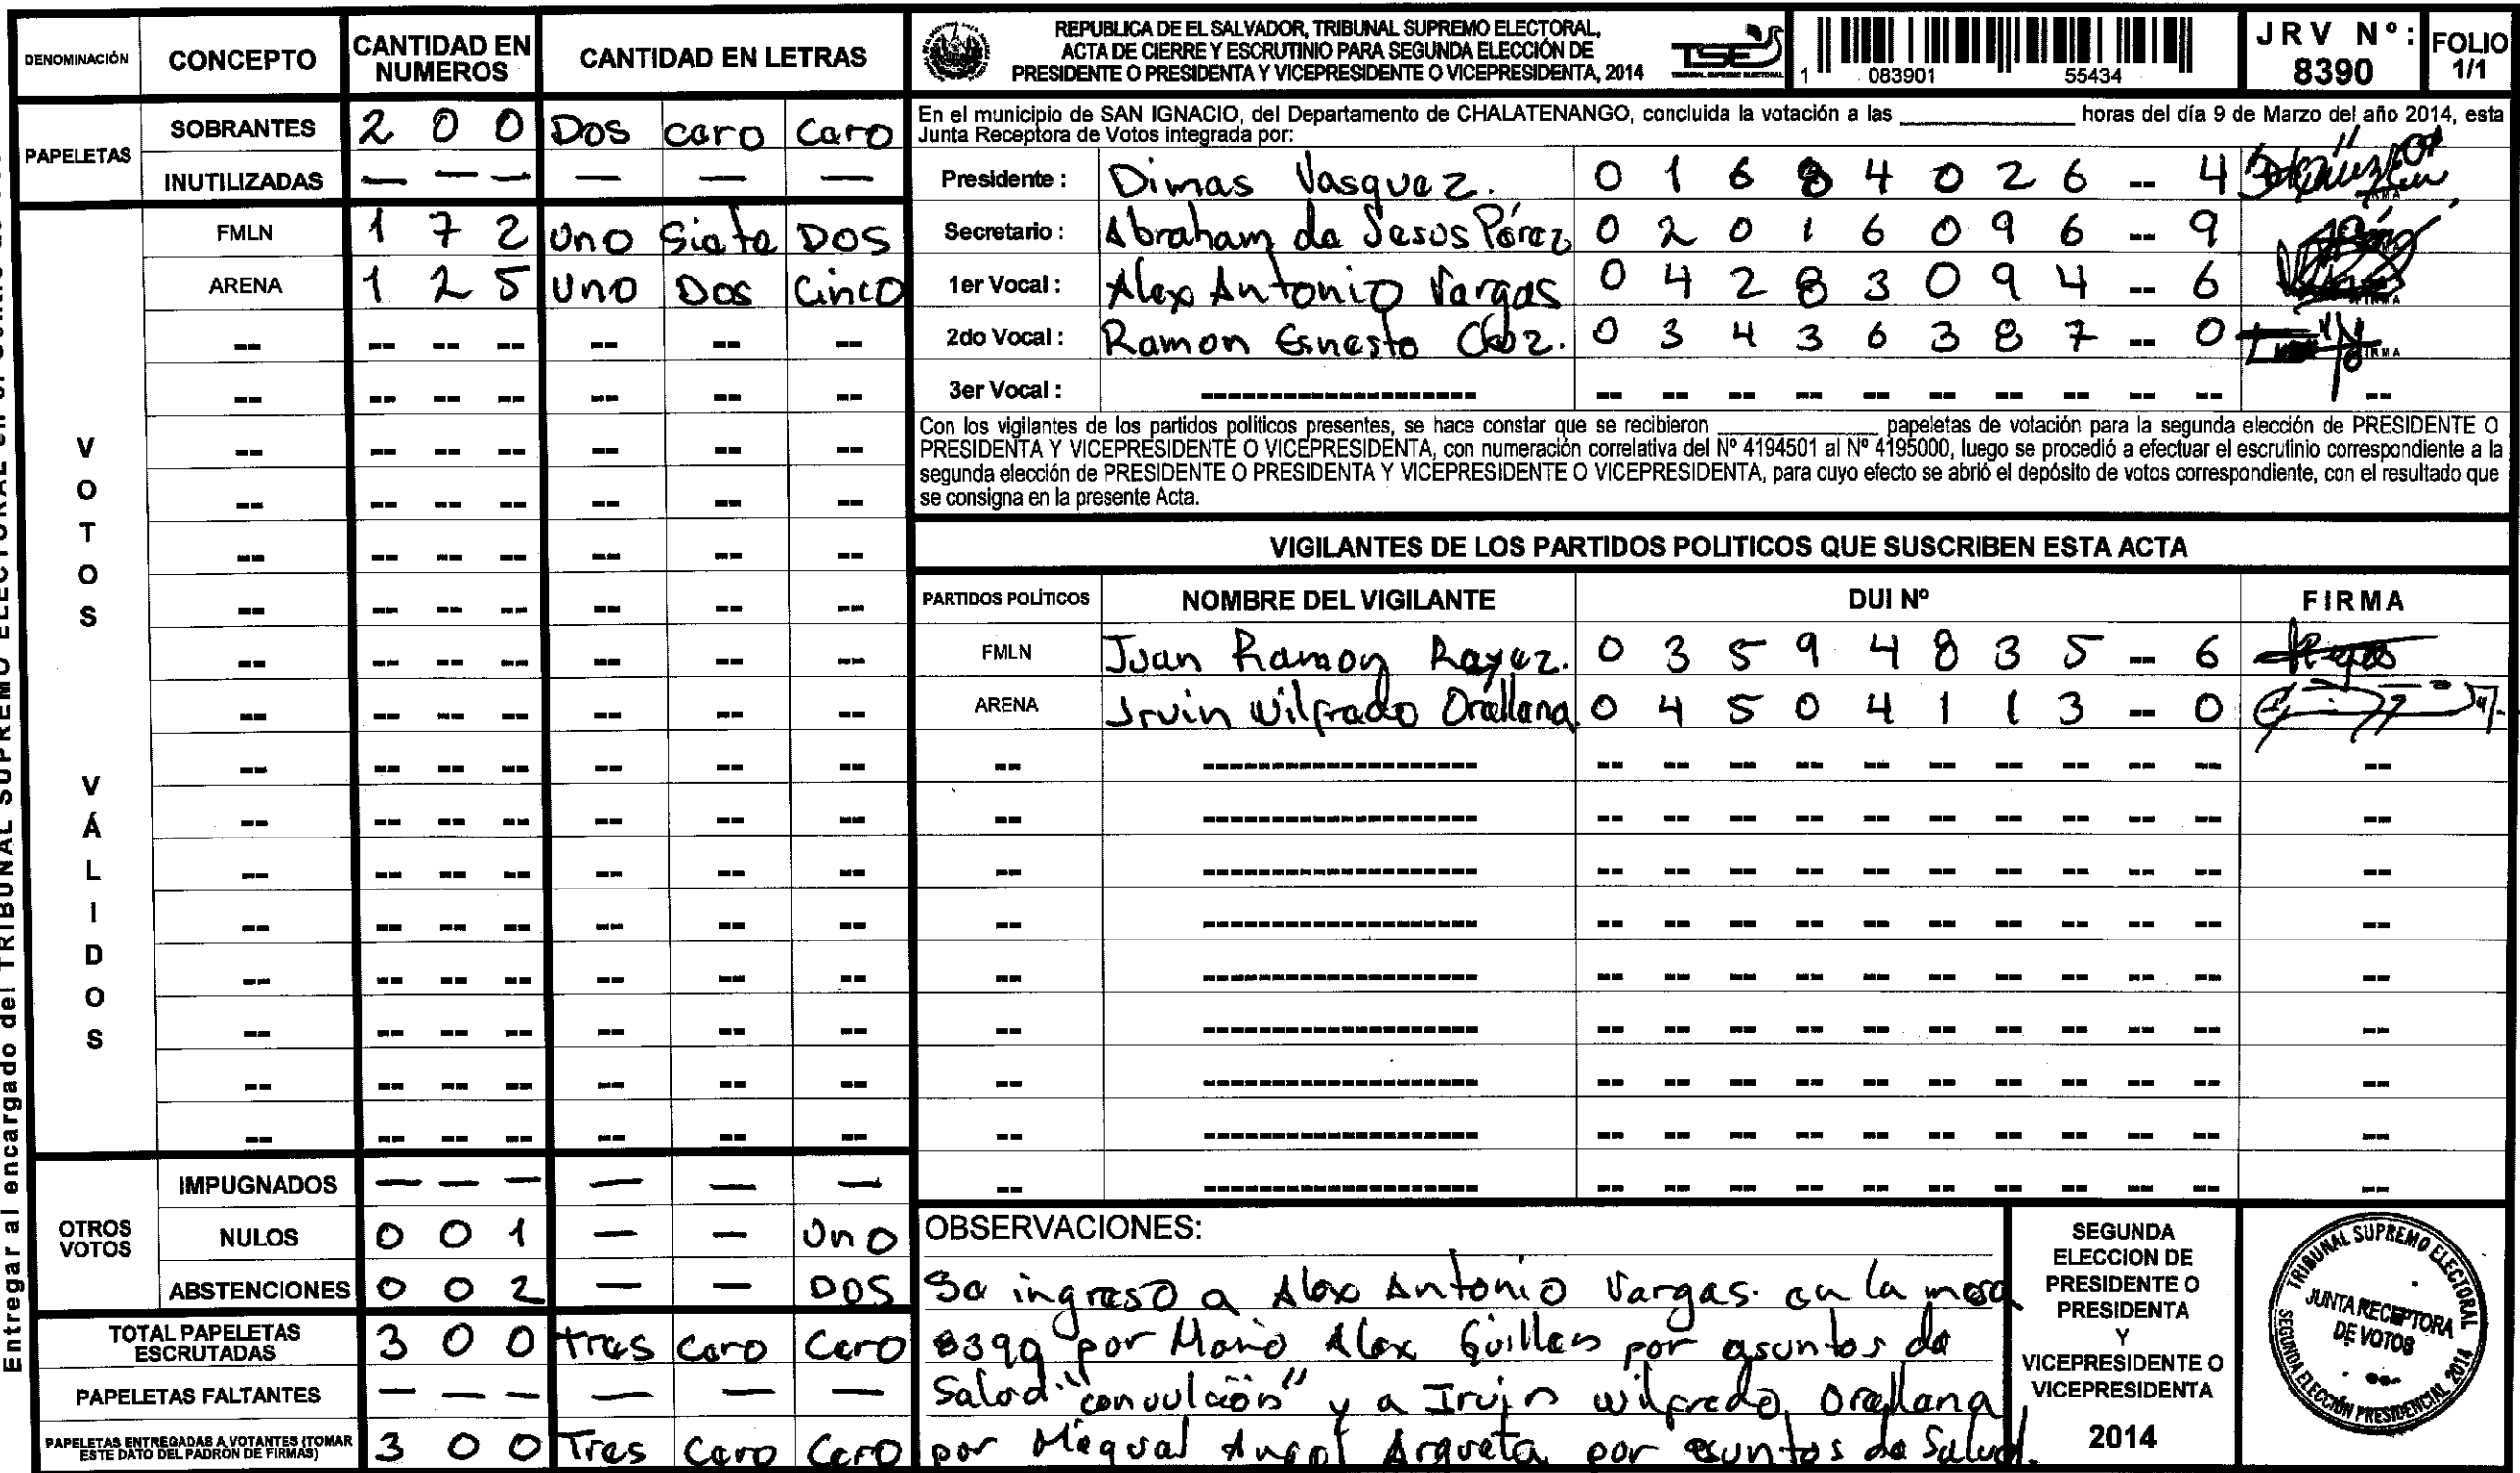 DENOMINACIÓN CONCEPTO CANTIDAD EN NUMEROS CANTIDAD EN LETRAS
PAPELETAS
SOBRANTES 2 0 0 Dos cero Cero
INUTILIZADAS — — — — — —
VOTOS VÁLIDOS
FMLN 1 7 2 Uno Siete DOS
ARENA 1 2 5 Uno Dos Cinco
OTROS VOTOS
IMPUGNADOS — — — — — —
NULOS 0 0 1 — — Uno
ABSTENCIONES 0 0 2 — — DOS
TOTAL PAPELETAS ESCRUTADAS 3 0 0 tres cero Cero
PAPELETAS FALTANTES — — — — — —
PAPELETAS ENTREGADAS A VOTANTES (TOMAR ESTE DATO DEL PADRÓN DE FIRMAS) 3 0 0 Tres Cero Cero
REPUBLICA DE EL SALVADOR, TRIBUNAL SUPREMO ELECTORAL,
ACTA DE CIERRE Y ESCRUTINIO PARA SEGUNDA ELECCIÓN DE
PRESIDENTE O PRESIDENTA Y VICEPRESIDENTE O VICEPRESIDENTA, 2014
TSE
1 083901 55434
JRV Nº: 8390
FOLIO 1/1
En el municipio de SAN IGNACIO, del Departamento de CHALATENANGO, concluida la votación a las ____ horas del día 9 de Marzo del año 2014, esta
Junta Receptora de Votos integrada por:
Presidente : Dimas Vasquez. 0 1 6 8 4 0 2 6 -- 4
Secretario : Abraham de Jesus Pérez 0 2 0 1 6 0 9 6 -- 9
1er Vocal : Alex Antonio Vargas 0 4 2 8 3 0 9 4 -- 6
2do Vocal : Ramon Ernesto 0 3 4 3 6 3 8 7 -- 0
3er Vocal :
Con los vigilantes de los partidos políticos presentes, se hace constar que se recibieron ____ papeletas de votación para la segunda elección de PRESIDENTE O
PRESIDENTA Y VICEPRESIDENTE O VICEPRESIDENTA, con numeración correlativa del Nº 4194501 al Nº 4195000, luego se procedió a efectuar el escrutinio correspondiente a la
segunda elección de PRESIDENTE O PRESIDENTA Y VICEPRESIDENTE O VICEPRESIDENTA, para cuyo efecto se abrió el depósito de votos correspondiente, con el resultado que
se consigna en la presente Acta.
VIGILANTES DE LOS PARTIDOS POLITICOS QUE SUSCRIBEN ESTA ACTA
PARTIDOS POLÍTICOS NOMBRE DEL VIGILANTE DUI Nº FIRMA
FMLN Juan Ramon 0 3 5 9 4 8 3 5 -- 6
ARENA Irvin Wilfredo Orellana 0 4 5 0 4 1 1 3 -- 0
OBSERVACIONES:
Se ingreso a Alex Antonio Vargas. en la mesa
8390 por Mario Alex Guillen por asuntos de
Salud "convulción" y a Irvin wilfredo Orellana
por Angel Argueta por asuntos de Salud.
SEGUNDA
ELECCION DE
PRESIDENTE O
PRESIDENTA
Y
VICEPRESIDENTE O
VICEPRESIDENTA
2014
TRIBUNAL SUPREMO ELECTORAL
JUNTA RECEPTORA
DE VOTOS
SEGUNDA ELECCIÓN PRESIDENCIAL 2014
Entregar al encargado del TRIBUNAL SUPREMO ELECTORAL en el